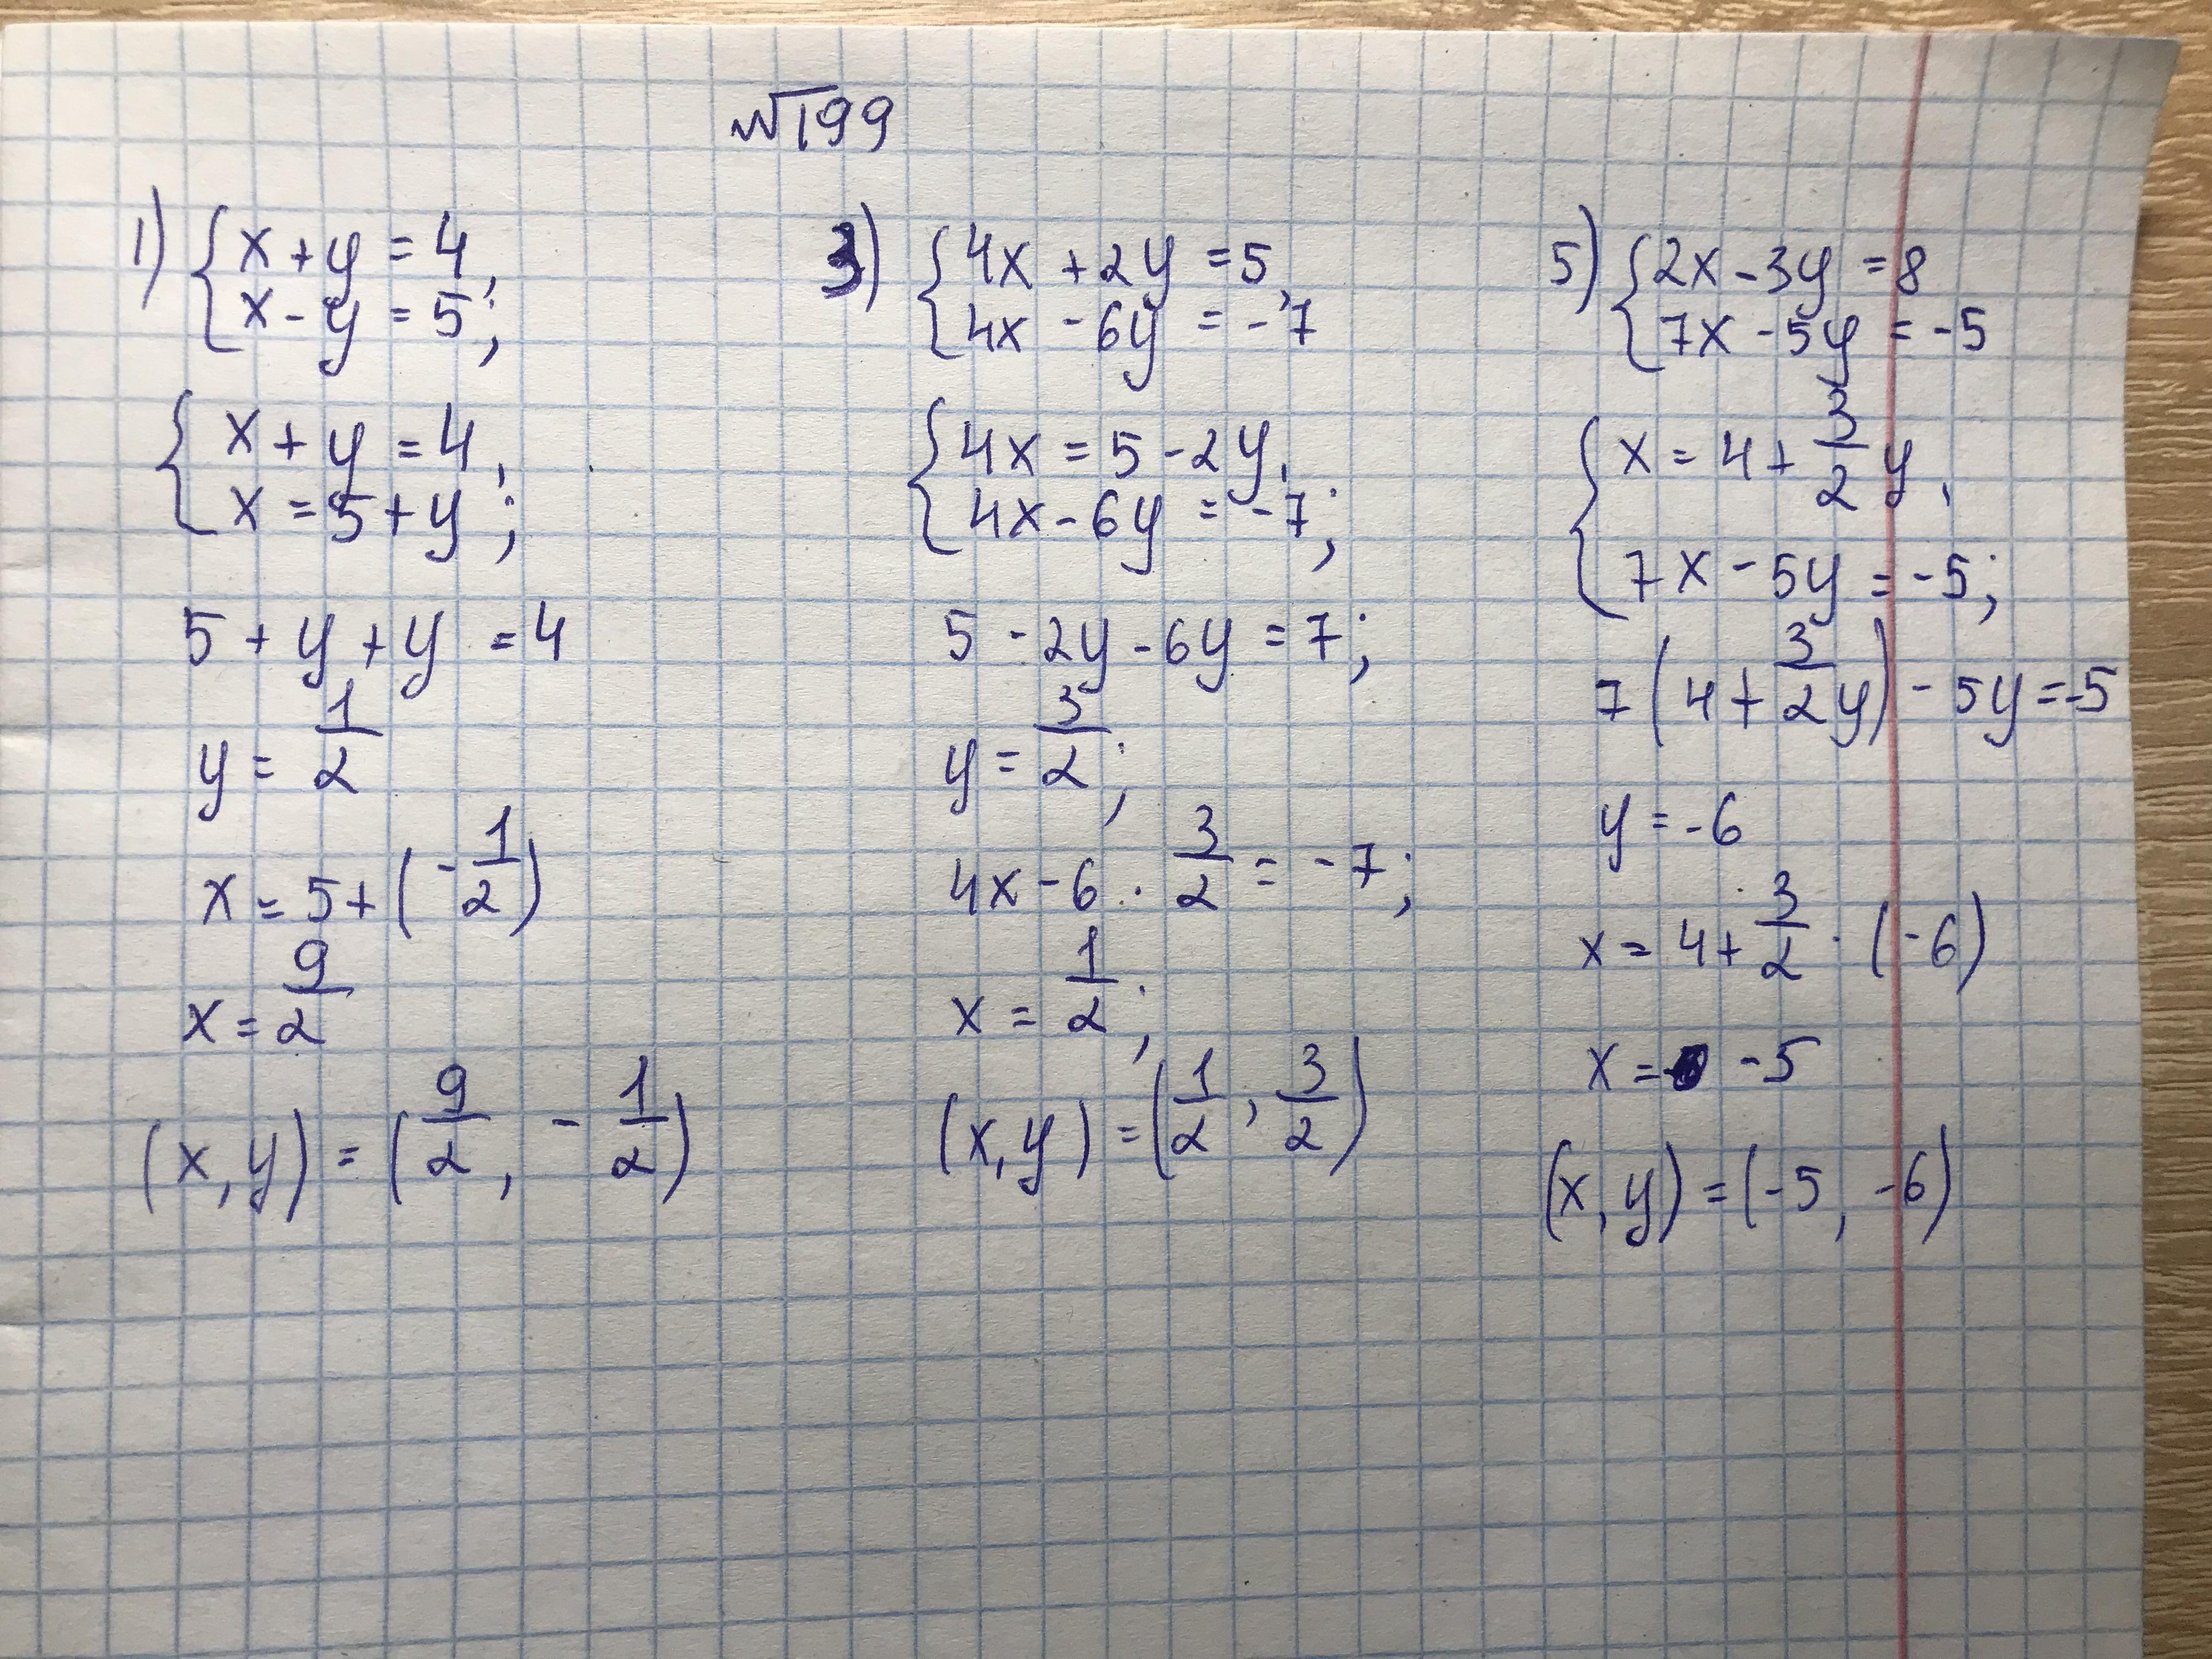 №199
1) { x + y = 4,
x - y = 5;
{ x + y = 4,
x = 5 + y;
5 + y + y = 4
y = 1/2
x = 5 + (-1/2)
x = 9/2
(x, y) = (9/2, -1/2)
3) { 4x + 2y = 5,
4x - 6y = -7
{ 4x = 5 - 2y,
4x - 6y = -7;
5 - 2y - 6y = 7;
y = 3/2;
4x - 6 · 3/2 = -7;
x = 1/2;
(x, y) = (1/2, 3/2)
5) { 2x - 3y = 8
7x - 5y = -5
{ x = 4 + 3/2 y,
7x - 5y = -5;
7(4 + 3/2y) - 5y = -5
y = -6
x = 4 + 3/2 · (-6)
x = -5
(x, y) = (-5, -6)